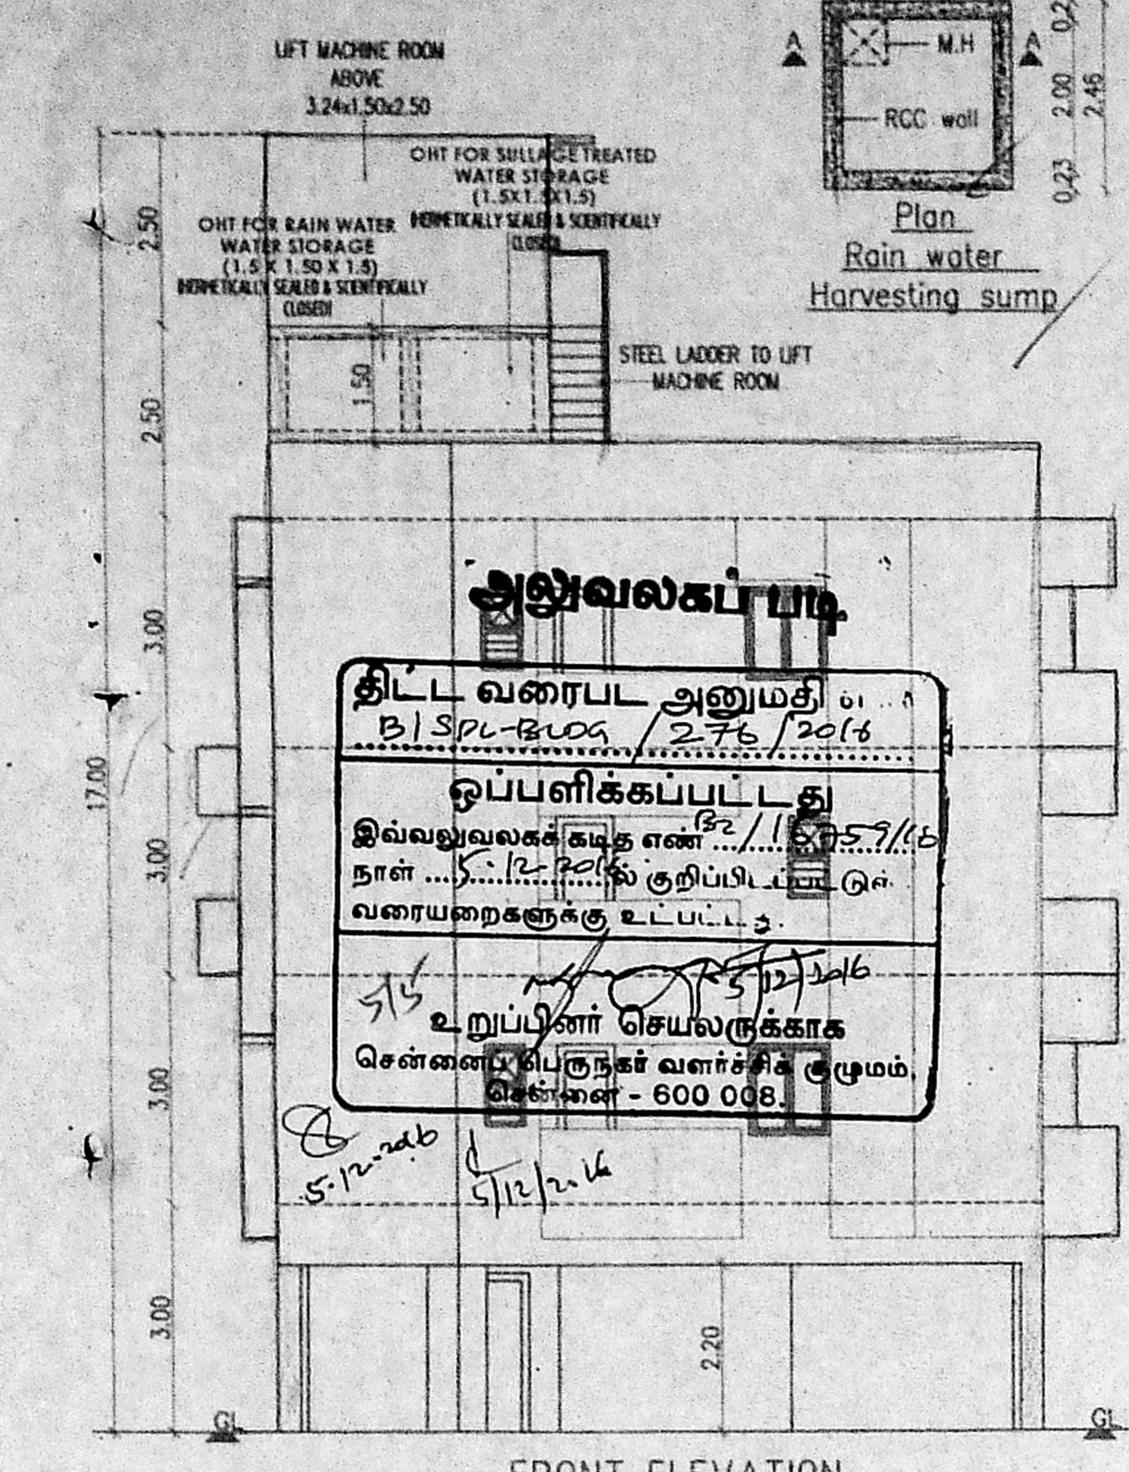 LIFT MACHINE ROOM
ABOVE
3.24x1.50x2.50
OHT FOR SULLAGE TREATED
WATER STORAGE
(1.5X1.5X1.5)
(HERMETICALLY SEALED & SCIENTIFICALLY
CLOSED)
OHT FOR RAIN WATER
WATER STORAGE
(1.5 X 1.50 X 1.5)
(HERMETICALLY SEALED & SCIENTIFICALLY
CLOSED)
STEEL LADDER TO LIFT
MACHINE ROOM
A
A
M.H
RCC wall
2.00
2.46
0.23
Plan
Rain water
Harvesting sump
2.50
2.50
1.50
3.00
17.00
3.00
3.00
3.00
2.20
அலுவலகப் படி
திட்ட வரைபட அனுமதி
B/SPL-BLDG/276/2016
ஒப்பளிக்கப்பட்டது
இவ்வலுவலகக் கடித எண்
நாள் 5-12-2016ல் குறிப்பிடப்பட்டுள்
வரையறைகளுக்கு உட்பட்டது.
5/12/2016
உறுப்பினர் செயலருக்காக
சென்னைப் பெருநகர் வளர்ச்சிக் குழுமம்,
சென்னை - 600 008.
5-12-2016
5/12/2016
GL
GL
FRONT ELEVATION